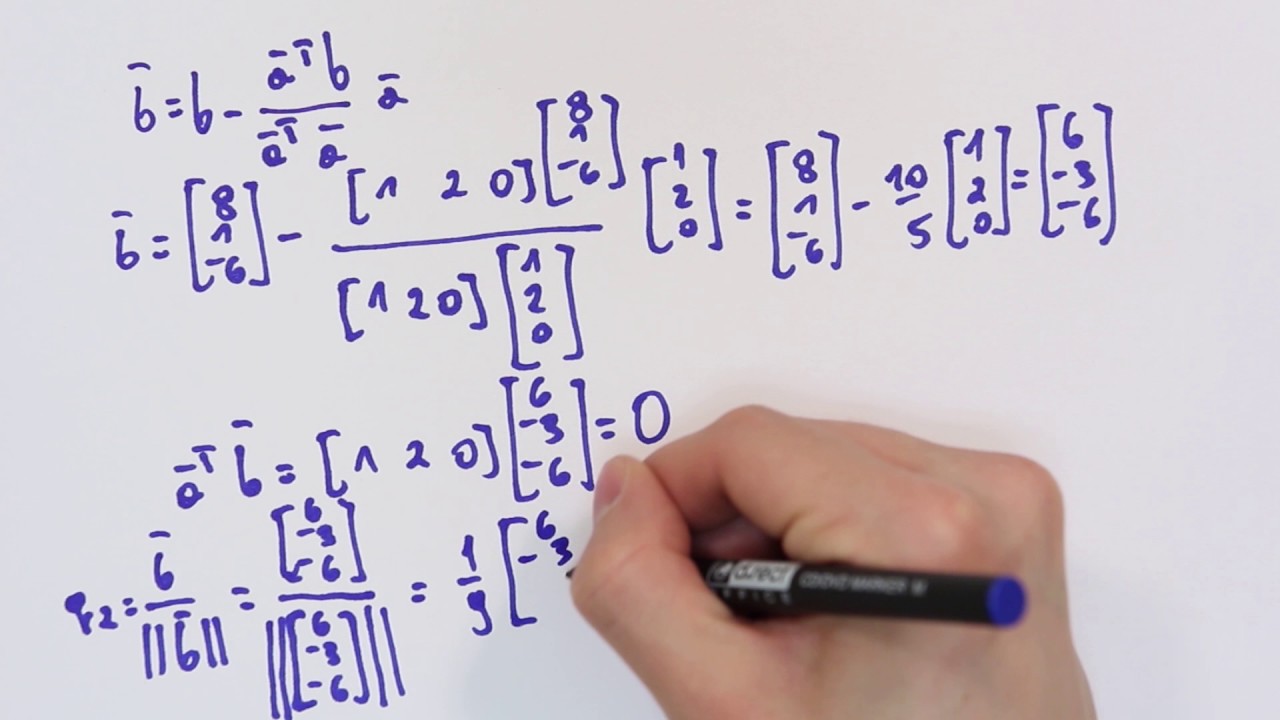 b̄ = b - āᵀb / āᵀā ā
b̄ = [8 1 -6] - [1 2 0][8 1 -6] / [1 2 0][1 2 0] [1 2 0] = [8 1 -6] - 10/5 [1 2 0] = [6 -3 -6]
āᵀ b̄ = [1 2 0][6 -3 -6] = 0
q₂ = b̄ / ||b̄|| = [6 -3 -6] / ||[6 -3 -6]|| = 1/9 [6 -3
direct
OFFICE